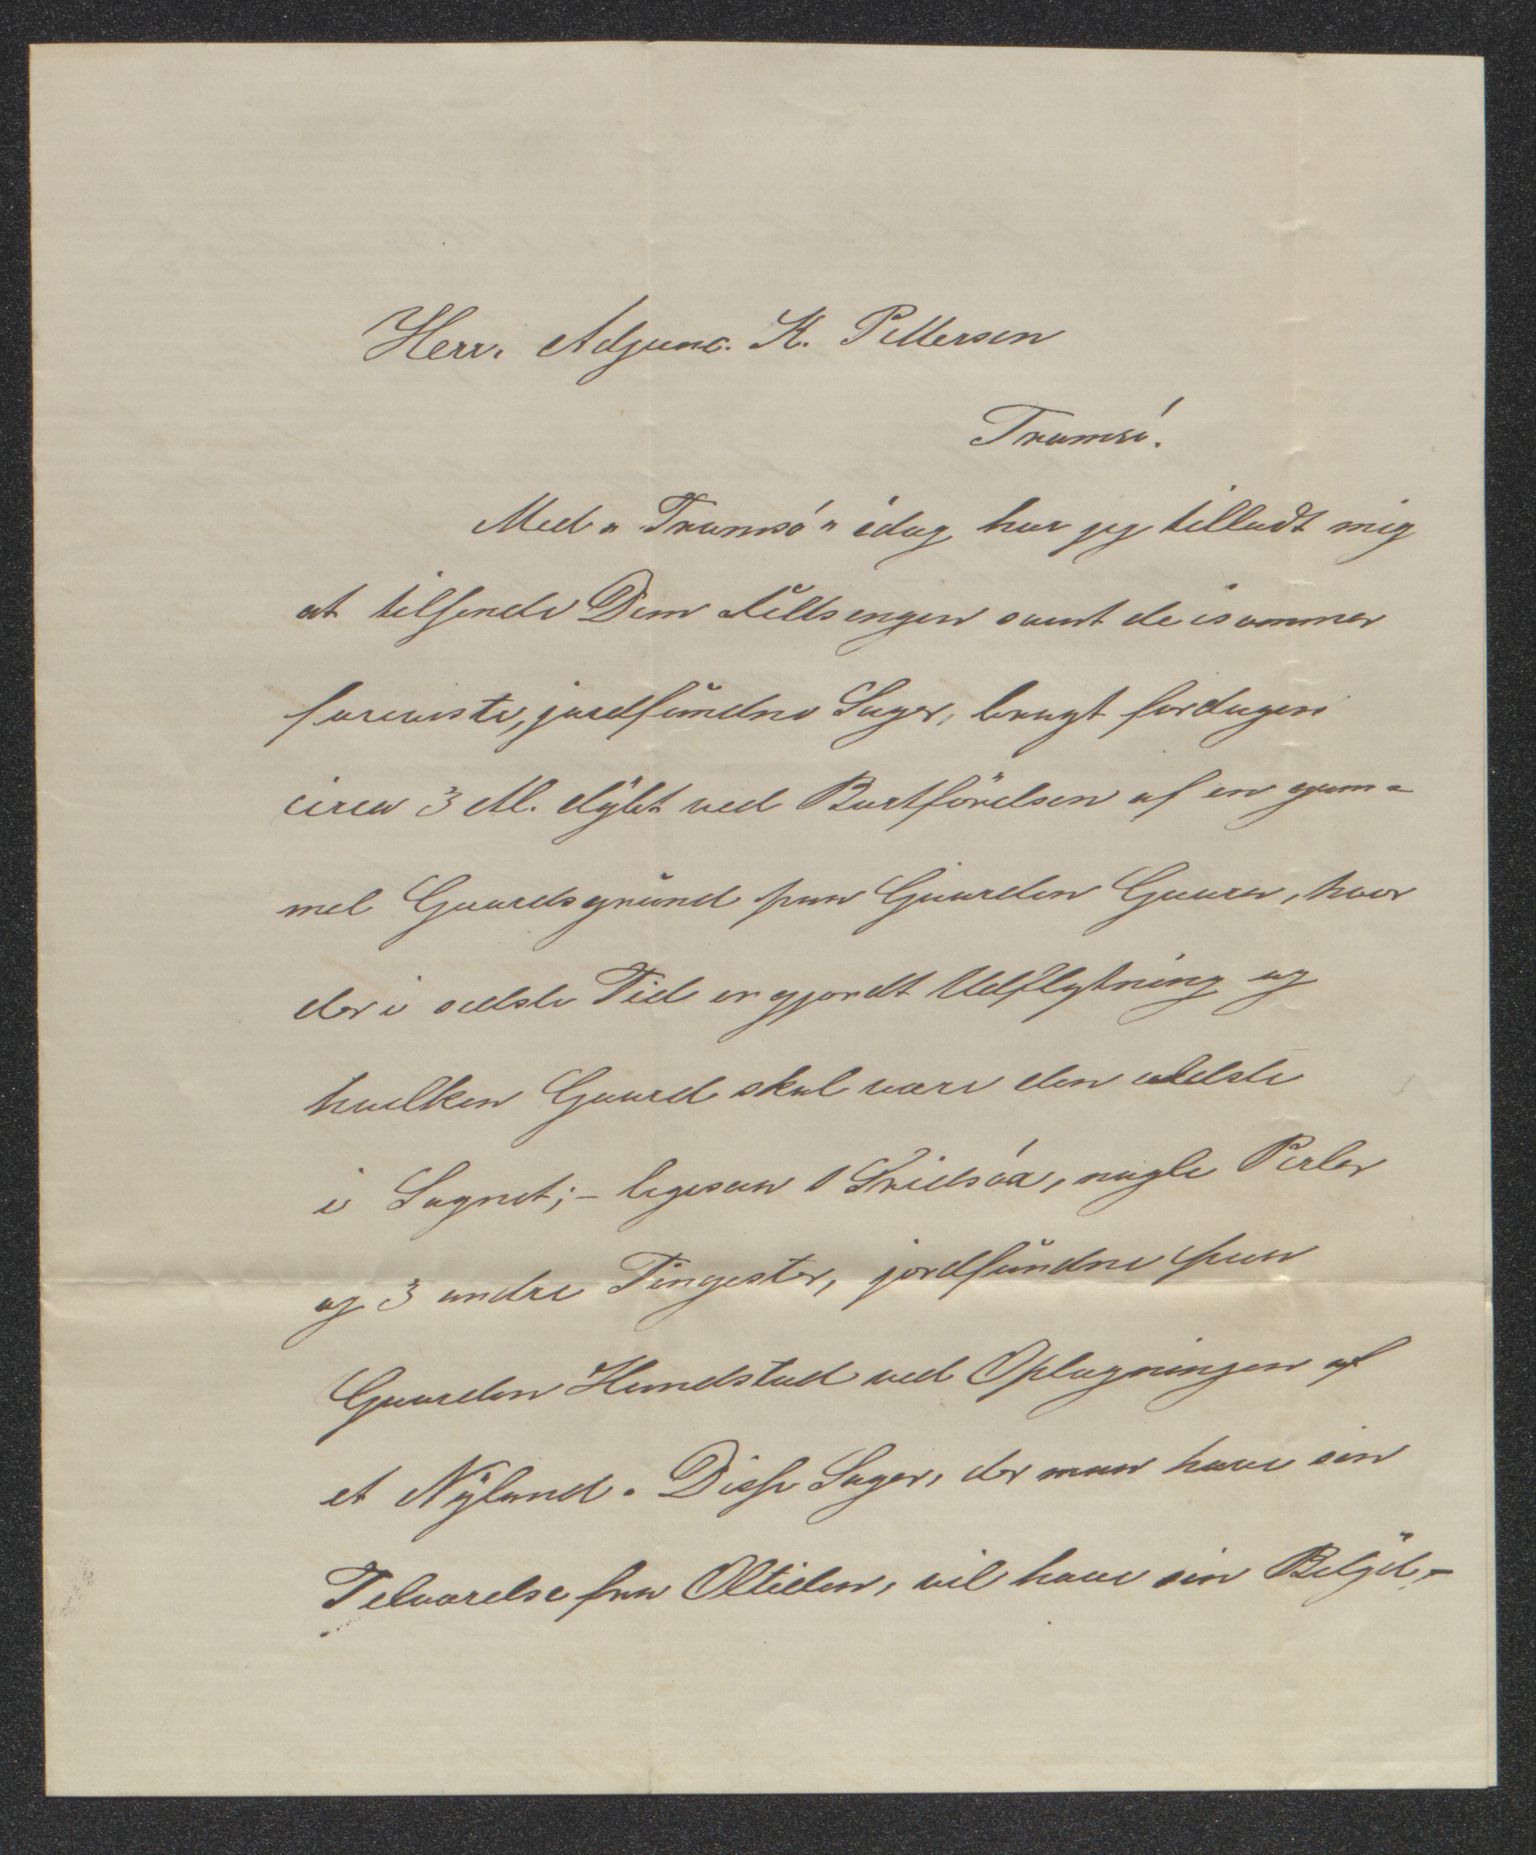 Herr. Adjunc. K. Pettersen
Tromsö.
Med "Tromsö" idag har jeg tilladt mig
at tilsende Dem samt de isommer
foreviste, jordfundne Sager, bragt fordagen i
circa 3 Al. dÿbt ved Bortförelsen af en gam-
mel Gaardsgrund paa Gaarden Gaara, hvor
der i sidste Tid er gjordt Udflytning og
hvilken Gaard skal være den ældste
i Sognet; – ligesaa 1 Skridsöx, nogle Perler
og 3 andre Tingester, jordfundne paa
Gaarden Hundstad ved Oplogningen af
et Nÿland. Disse Sager, der maa have sin
Tilværelse fra Oltiden, vil have sin Betÿd-